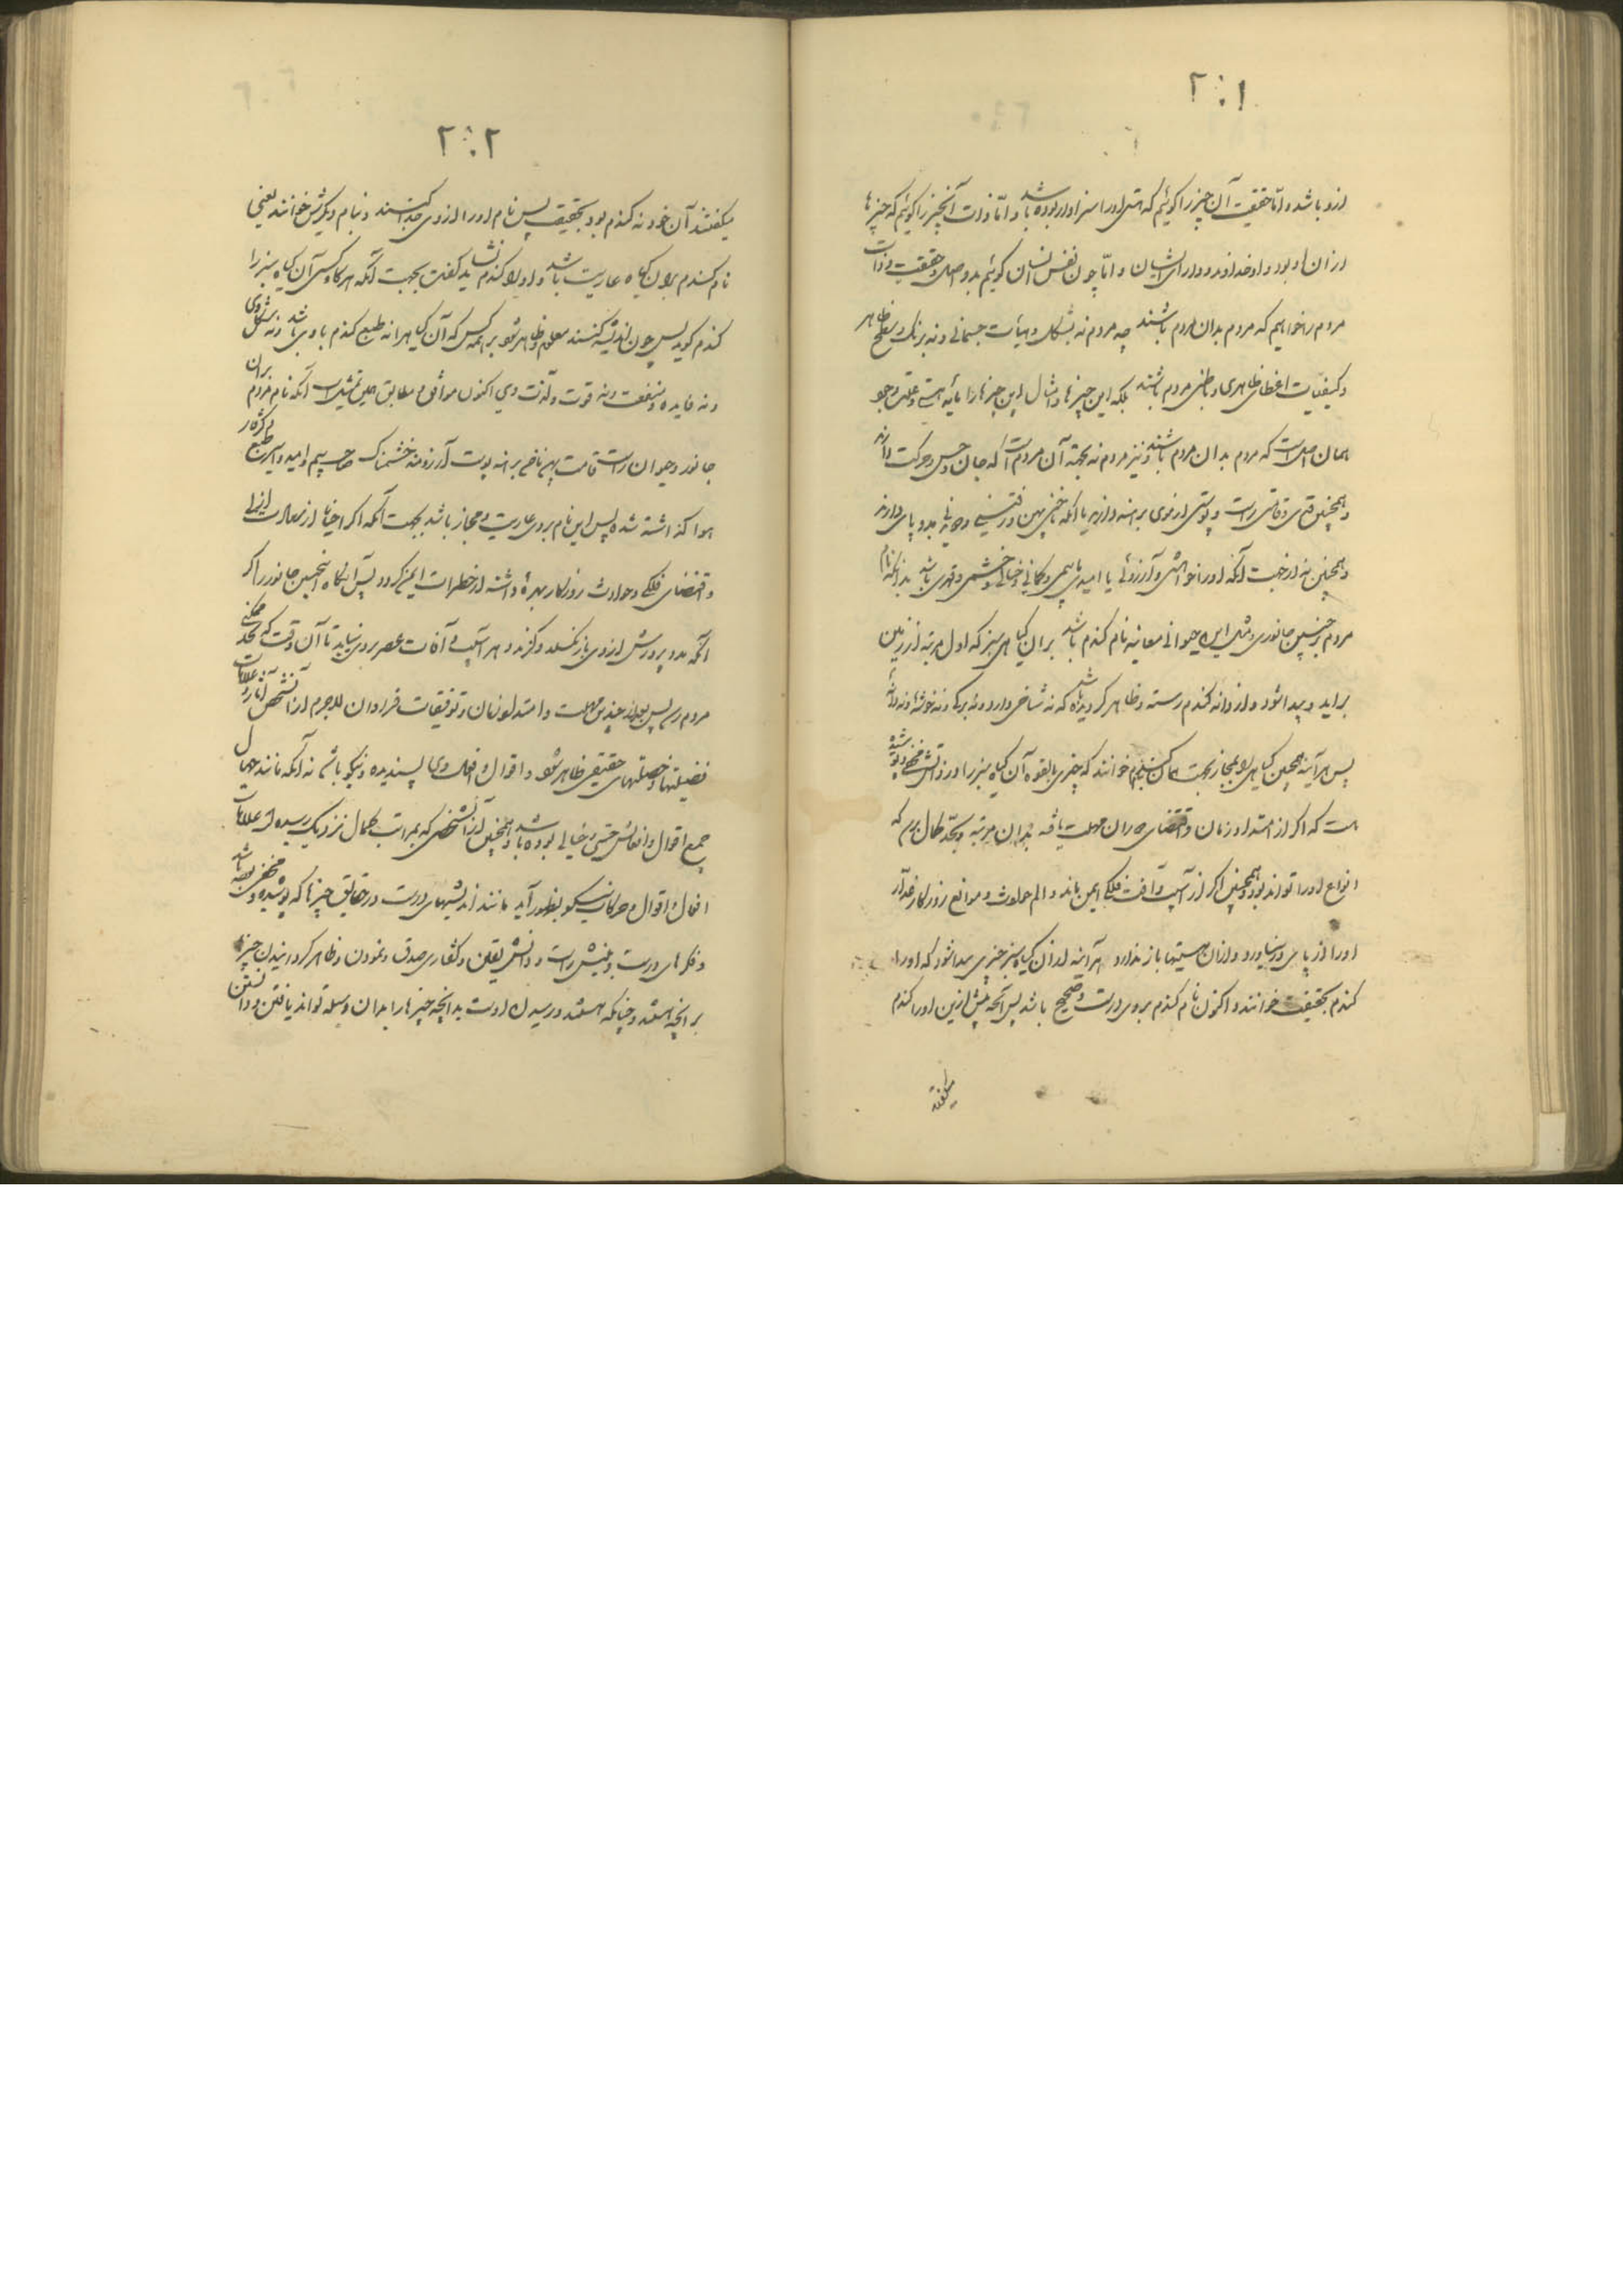 ۲۰۱
ازو باشد و امّا حقیقت آن چیز را گوئیم که هستی او را سزاوار بوده باشد و امّا ذات آنچیز را گوئیم که چیزها
از آن او بود و او خداوند و دارای ایشان و امّا چون نفس انسان گوئیم بدو اصل و حقیقت و ذات
مردم را خواهیم که مردم بدان مردم باشند چه مردم نه بشکل و هیأت جسمانی و نه برنگ و سطح ظاهر
و کیفیات اعضای ظاهری و باطنی مردم باشند بلکه این چیزها و امثال این چیزها را مایه هستی و علت وجود
همان اصل است که مردم بدان مردم باشند و نیز مردم نه بجهة آن مردم است که جان و حس و حرکت دارند
و همچنین قدی و قامتی راست و پوستی از موی برهنه دارند یا آنکه ناخنی پهن و رفتنی بدو پای دارند
و همچنین نه از جهت آنکه او را خواهشی و آرزوئی یا امیدی یا بیمی و گمانی و خیالی و خشمی و قهری باشد بدانکه نام
مردم بر چنین جانوری و مثل این حیوانی معاینه نام گندم باشد بر آن گیاهی سبز که اول مرتبه از زمین
برآید و پیدا شود و از دانه گندم رسته و ظاهر گردیده باشد که نه شاخی دارد و نه برگی و نه خوشهٔ و نه دانهٔ
پس هر آینه همچنین گیاهی را بمجاز بجهت آن گندم خوانند که چیزی بالقوه آن گیاه سبز را در ذاتش مخفی و پوشیده
است که اگر از امتداد زمان و اقتضای دوران مهلت یافته بدان مرتبه و بحدّ کمال برسد که
انواع او را تواند بود و همچنین اگر از آسیب و آفت فلکی ایمن ماند و الم حوادث و موانع روزگار غدّار
او را از پای در نیاورد و از آن هستیها باز ندارد هر آینه از آن گیاه سبز چیزی پیدا شود که او را
گندم بحقیقت خوانند و اکنون نام گندم بر وی درست و صحیح باشد پس آنچه پیش ازین او را گندم
میگفتند
۲۰۲
میگفتند آن خود نه گندم بود بحقیقت پس نام او را از وی جدا کنند و بنام دیگرش خوانند یعنی
نام گندم بر آن گیاه عاریت باشد و او را گندم نشاید گفت بجهت آنکه هرگاه کسی آن گیاه سبز را
گندم گوید پس چون اندیشه کنند معلوم و ظاهر شود بر همه کس که آن گیاه را نه طبع گندم با وی باشد و نه شکل وی
و نه فایده و منفعت و نه قوت و لذت وی اکنون موافق و مطابق همین تمثیل است آنکه نام مردم بر آن
جانور و حیوان راست قامت پهن ناخن برهنه پوست آرزومند خشمناک صاحب بیم و امید و اگر طبع
هوا گذاشته شد پس این نام بر وی عاریت و مجاز باشد بجهت آنکه اگر احیانا از سعادت ازلی
و اقتضای فلکی و حوادث روزگار بهرهٔ داشته از خطرات ایمن گردد پس آنگاه اینچنین جانور را اگر
آنکه مدد پرورش از وی باز نگسلد و گزند و هر آسیب و آفات عصر بر وی نیاید تا آن وقت که بحد ممکن
مردم رسد پس بعد از چندین مهلت و امتداد زمان و توفیقات فراوان لاجرم از آن شخص آثار و علامات
فضیلتها و خصلتهای حقیقی ظاهر شود و اقوال و افعال وی پسندیده و نیکو باشد نه آنکه مانند جهال
جمیع اقوال و افعالش حسّی و خیالی بوده باشد و همچنین از آن شخصی که بمراتب کمال نزدیک رسیده از علامات
افعال و اقوال و حرکات نیکو بظهور آید مانند اندیشهای درست در حقایق چیزها که پوشیده و مخفی بوده باشد
و فکرهای درست و بینش راست و دانش یقین و گفتاری صدق و نمودن و ظاهر گردانیدن چیزها
بر آنچه هستند و چنانکه هستند و رسیدن اوست بدانچه چیزها را بدان وسیله تواند یافتن و دانستن